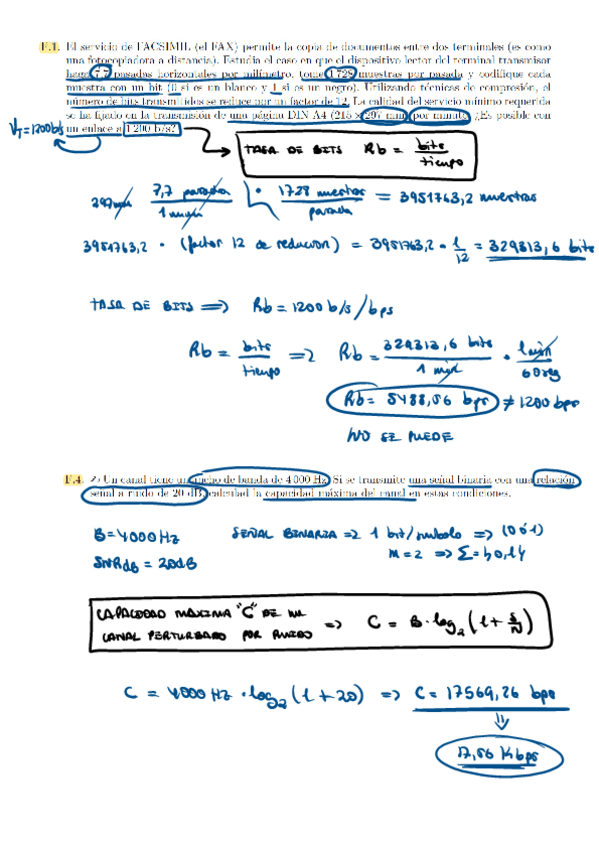 F.1. El servicio de FACSIMIL (el FAX) permite la copia de documentos entre dos terminales (es como
una fotocopiadora a distancia). Estudia el caso en que el dispositivo lector del terminal transmisor
haga 7,7 pasadas horizontales por milímetro, tome 1 728 muestras por pasada y codifique cada
muestra con un bit (0 si es un blanco y 1 si es un negro). Utilizando técnicas de compresión, el
número de bits transmitidos se reduce por un factor de 12. La calidad del servicio mínimo requerida
se ha fijado en la transmisión de una página DIN A4 (215 × 297 mm) por minuto. ¿Es posible con
un enlace a 1 200 b/s?
VT = 1200 b/s
TASA DE BITS Rb = bits / tiempo
297 mm · 7,7 pasada / 1 mm · 1728 muestras / pasada = 3951763,2 muestras
3951763,2 · (factor 12 de reducion) = 3951763,2 · 1/12 = 329313,6 bits
TASA DE BITS ⟹ Rb = 1200 b/s / bps
Rb = bits / tiempo ⟹ Rb = 329313,6 bits / 1 min · 1 min / 60 seg
Rb = 5488,56 bps ≠ 1200 bps
NO SE PUEDE
F.4. 2) Un canal tiene un ancho de banda de 4 000 Hz. Si se transmite una señal binaria con una relación
señal a ruido de 20 dB, calculad la capacidad máxima del canal en estas condiciones.
B = 4000 Hz SEÑAL BINARIA ⟹ 1 bit/simbolo ⟹ (0 ó 1)
SNRdB = 20dB M = 2 ⟹ Σ = {0,1}
CAPACIDAD MÁXIMA "C" DE UN
CANAL PERTURBADO POR RUIDO ⟹ C = B · log₂ (1 + S/N)
C = 4000 Hz · log₂ (1 + 20) ⟹ C = 17569,26 bps
17,56 Kbps